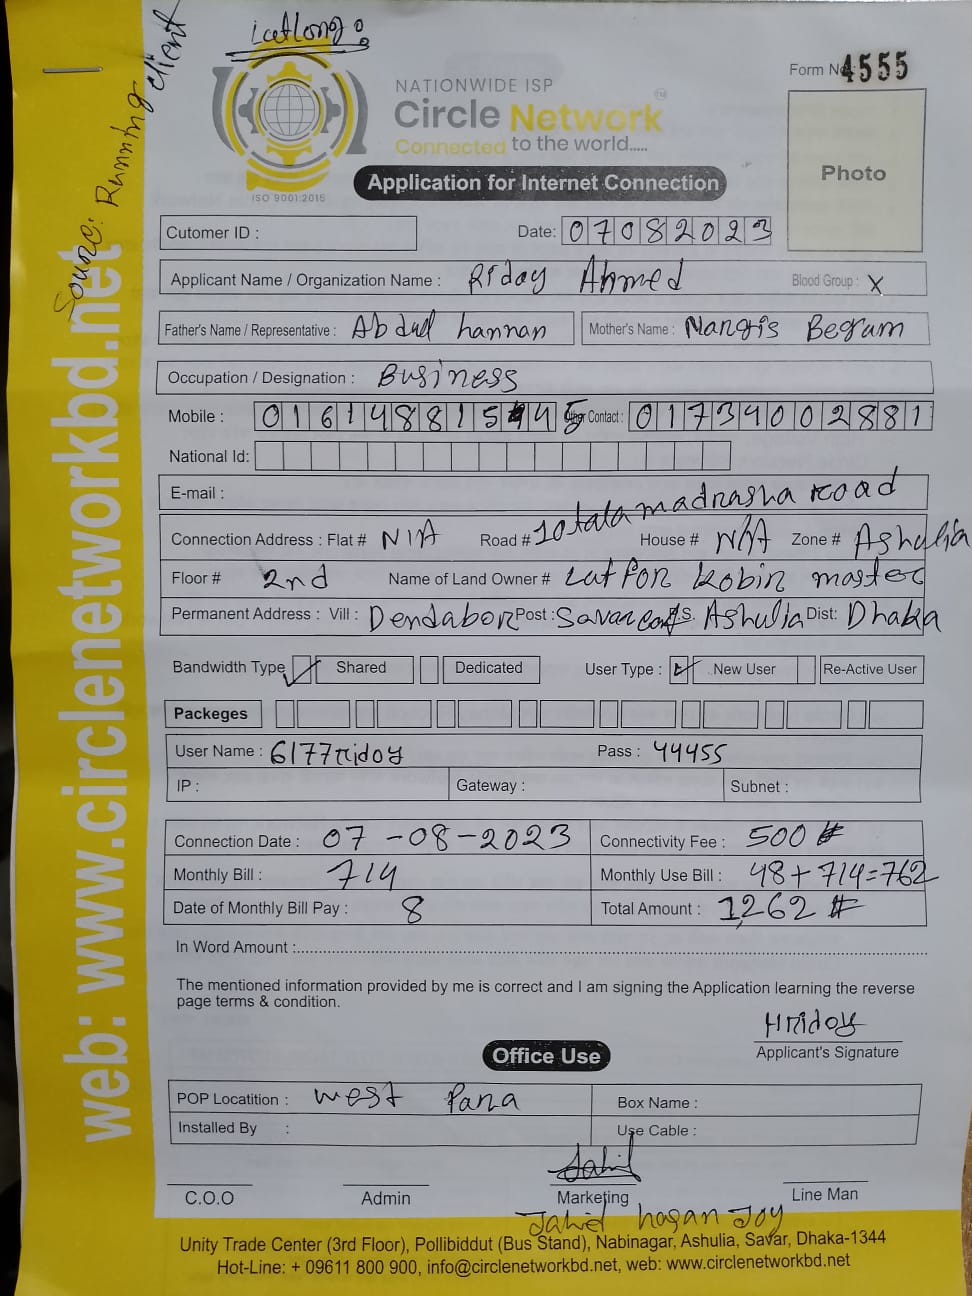 Latlong:
Source: Running client
Form No 4555
NATIONWIDE ISP
Circle Network
TM
Connected to the world.....
ISO 9001:2015
Application for Internet Connection
Photo
Cutomer ID :
Date: 07082023
Applicant Name / Organization Name : Riday Ahmed Blood Group : X
Father's Name / Representative : Abdul hannan Mother's Name : Nangis Begum
Occupation / Designation : Business
Mobile : 016148815 44 5 Other Contact : 01739002881
National Id:
E-mail :
Connection Address : Flat # N/A Road # 10tala madrasha road House # N/A Zone # Ashulia
Floor # 2nd Name of Land Owner # Lutfor kobin master
Permanent Address : Vill : Dendabor Post : Savar cant P.S. Ashulia Dist: Dhaka
Bandwidth Type Shared Dedicated User Type : New User Re-Active User
Packeges
User Name : 6177ridoy Pass : 44455
IP : Gateway : Subnet :
Connection Date : 07-08-2023 Connectivity Fee : 500 #
Monthly Bill : 714 Monthly Use Bill : 48+714=762
Date of Monthly Bill Pay : 8 Total Amount : 1,262 #
In Word Amount :
The mentioned information provided by me is correct and I am signing the Application learning the reverse
page terms & condition.
Hridoy
Applicant's Signature
Office Use
POP Locatition : West Para Box Name :
Installed By : Use Cable :
Jahid
C.O.O Admin Marketing Line Man
Jahid hasan Joy
Unity Trade Center (3rd Floor), Pollibiddut (Bus Stand), Nabinagar, Ashulia, Savar, Dhaka-1344
Hot-Line: + 09611 800 900, info@circlenetworkbd.net, web: www.circlenetworkbd.net
web: www.circlenetworkbd.net